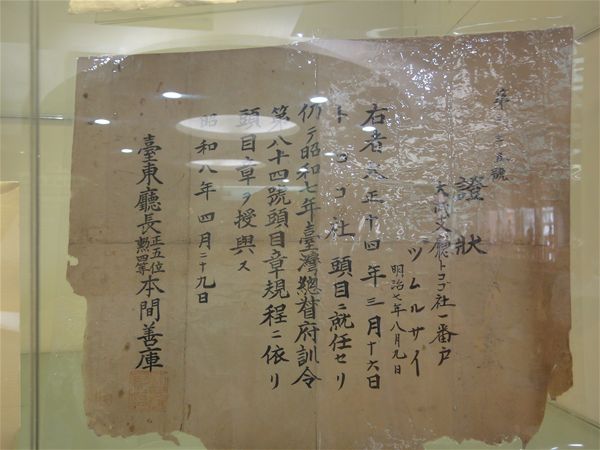 第 三 五號
證 狀
大武支廳トココ社一番戶
ヅムルサイ
明治七年八月九日
右者大正十四年三月十六日
トココ社 頭目ニ就任セリ
仍テ昭和七年臺灣總督府訓令
第八十四號頭目章規程ニ依リ
頭目章ヲ授與ス
昭和八年四月二十九日
臺東廳長正五位勳四等本間善庫